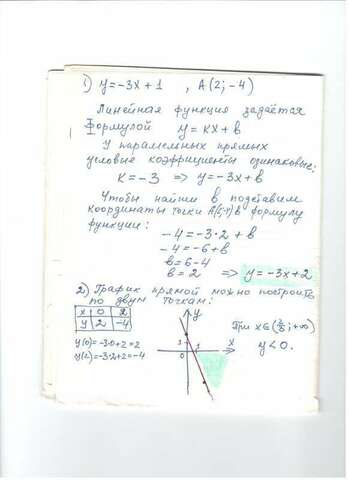 1) y=-3x+1 , A(2;-4)
Линейная функция задаётся
формулой y=kx+b
У параллельных прямых
угловые коэффициенты одинаковые:
k=-3 ⇒ y=-3x+b
Чтобы найти b подставим
координаты точки A(2;-4) в формулу
функции:
-4=-3·2+b
-4=-6+b
b=6-4
b=2 ⇒ y=-3x+2
2) График прямой можно построить
по двум точкам:
x 0 2
y 2 -4
y(0)=-3·0+2=2
y(2)=-3·2+2=-4
y
x
0
1
1
При x∈(2/3;+∞)
y<0.